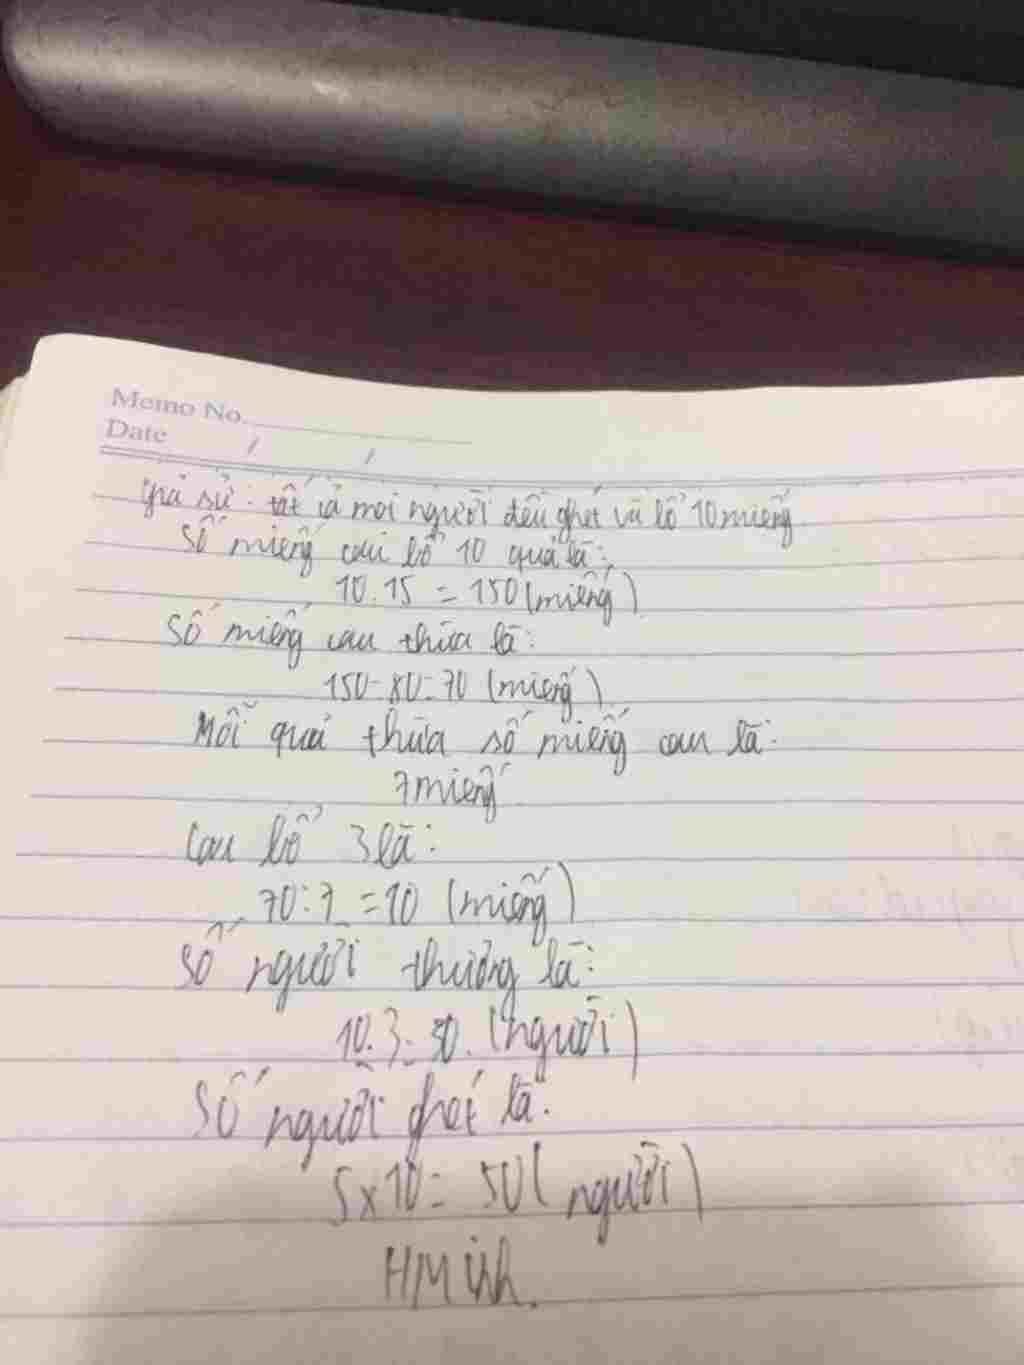 Memo No.
Date / /
giả sử : tất cả mọi người đều ghét và bổ 10 miếng
Số miếng cau bổ 10 quả là:
10.15 = 150 (miếng)
Số miếng cau thừa là:
150-80=70 (miếng)
Mỗi quả thừa số miếng cau là:
7 miếng
Cau bổ 3 là:
70:7 =10 (miếng)
số người thương là:
10.3=30. (người)
Số người ghét là:
5x10= 50 ( người)
HMinh.